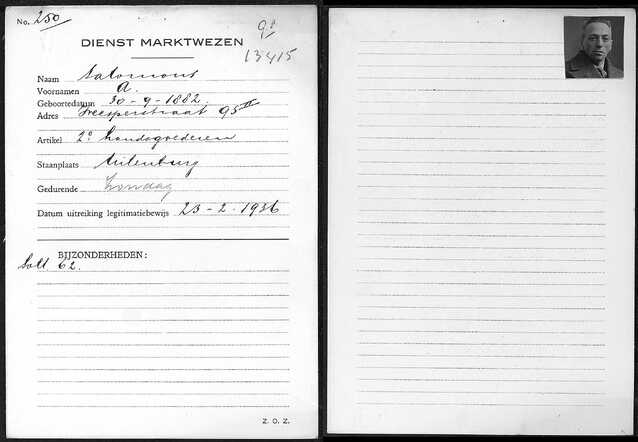 No. 250
9.1
DIENST MARKTWEZEN
13415
Naam Salomons
Voornamen A.
Geboortedatum 30-9-1882.
Adres Weesperstraat 95 II
Artikel 2º handsgoederen
Staanplaats Uilenburg
Gedurende Zondag
Datum uitreiking legitimatiebewijs 23-2-1936
BIJZONDERHEDEN:
Soll 62.
Z. O. Z.